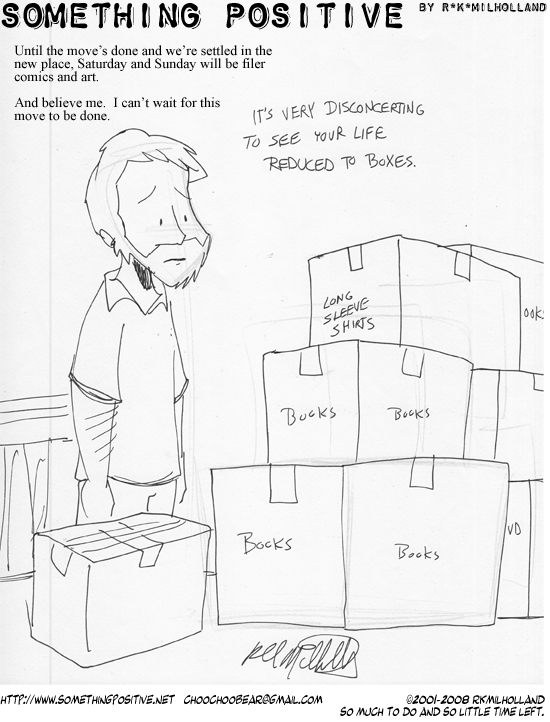 SOMETHING POSITIVE BY R*K*MILHOLLAND
Until the move's done and we're settled in the
new place, Saturday and Sunday will be filer
comics and art.
And believe me.  I can't wait for this
move to be done.
IT'S VERY DISCONCERTING
TO SEE YOUR LIFE
REDUCED TO BOXES.
LONG
SLEEVE
SHIRTS
OOKS
BOOKS
BOOKS
BOOKS
BOOKS
VD
HTTP://WWW.SOMETHINGPOSITIVE.NET CHOOCHOOBEAR@GMAIL.COM
©2001-2008 RKMILHOLLAND
SO MUCH TO DO AND SO LITTLE TIME LEFT.